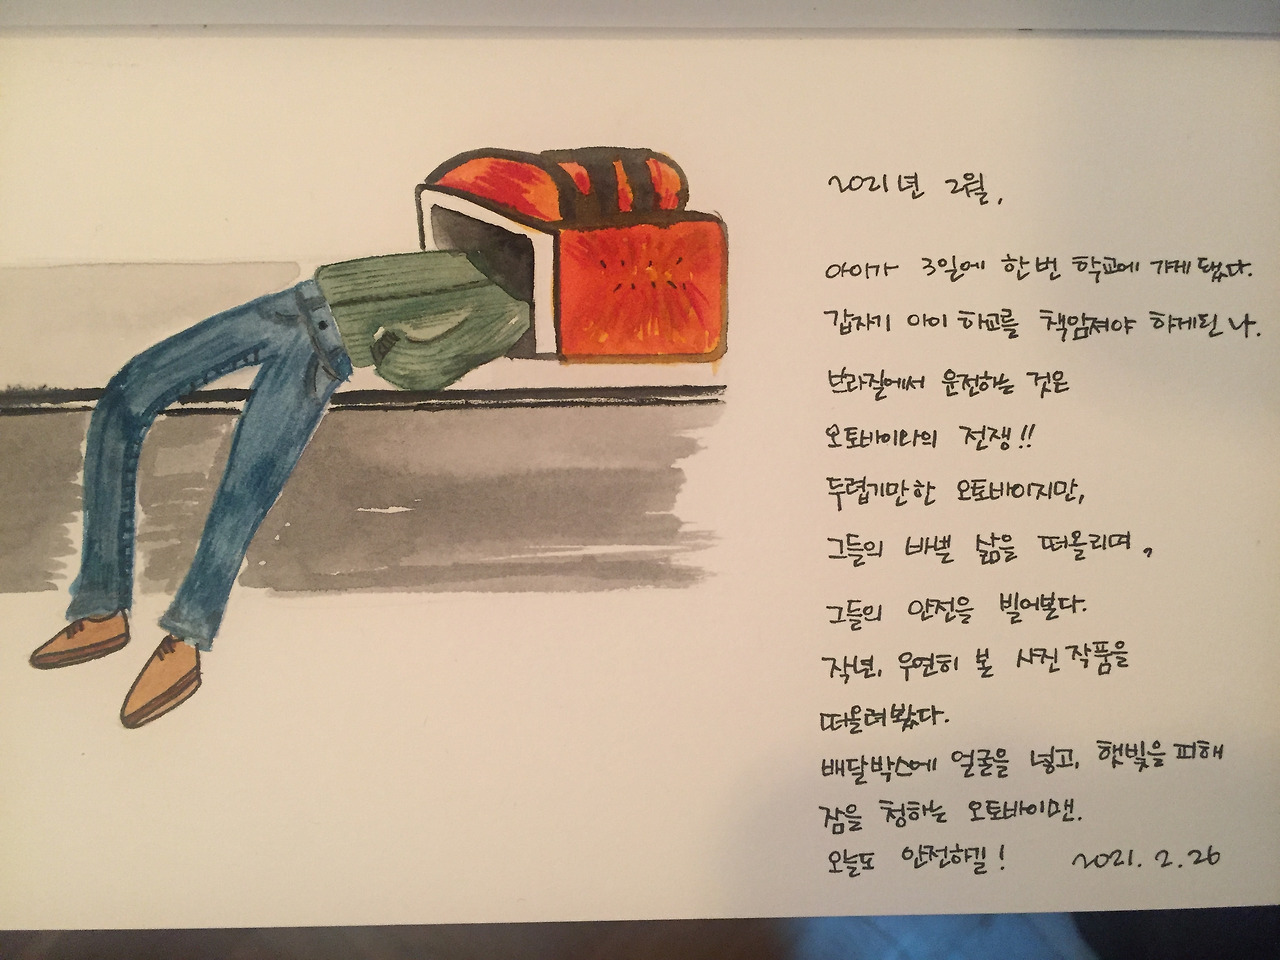 2021년 2월,
아이가 3일에 한번 학교에 가게 됐다.
갑자기 아이 하교를 책임져야 하게된 나.
브라질에서 운전하는 것은
오토바이와의 전쟁!!
두렵기만한 오토바이지만,
그들의 바쁜 삶을 떠올리며,
그들의 안전을 빌어본다.
작년, 우연히 본 사진작품을
떠올려봤다.
배달박스에 얼굴을 넣고, 햇빛을 피해
잠을 청하는 오토바이맨.
오늘도 안전하길! 2021. 2. 26